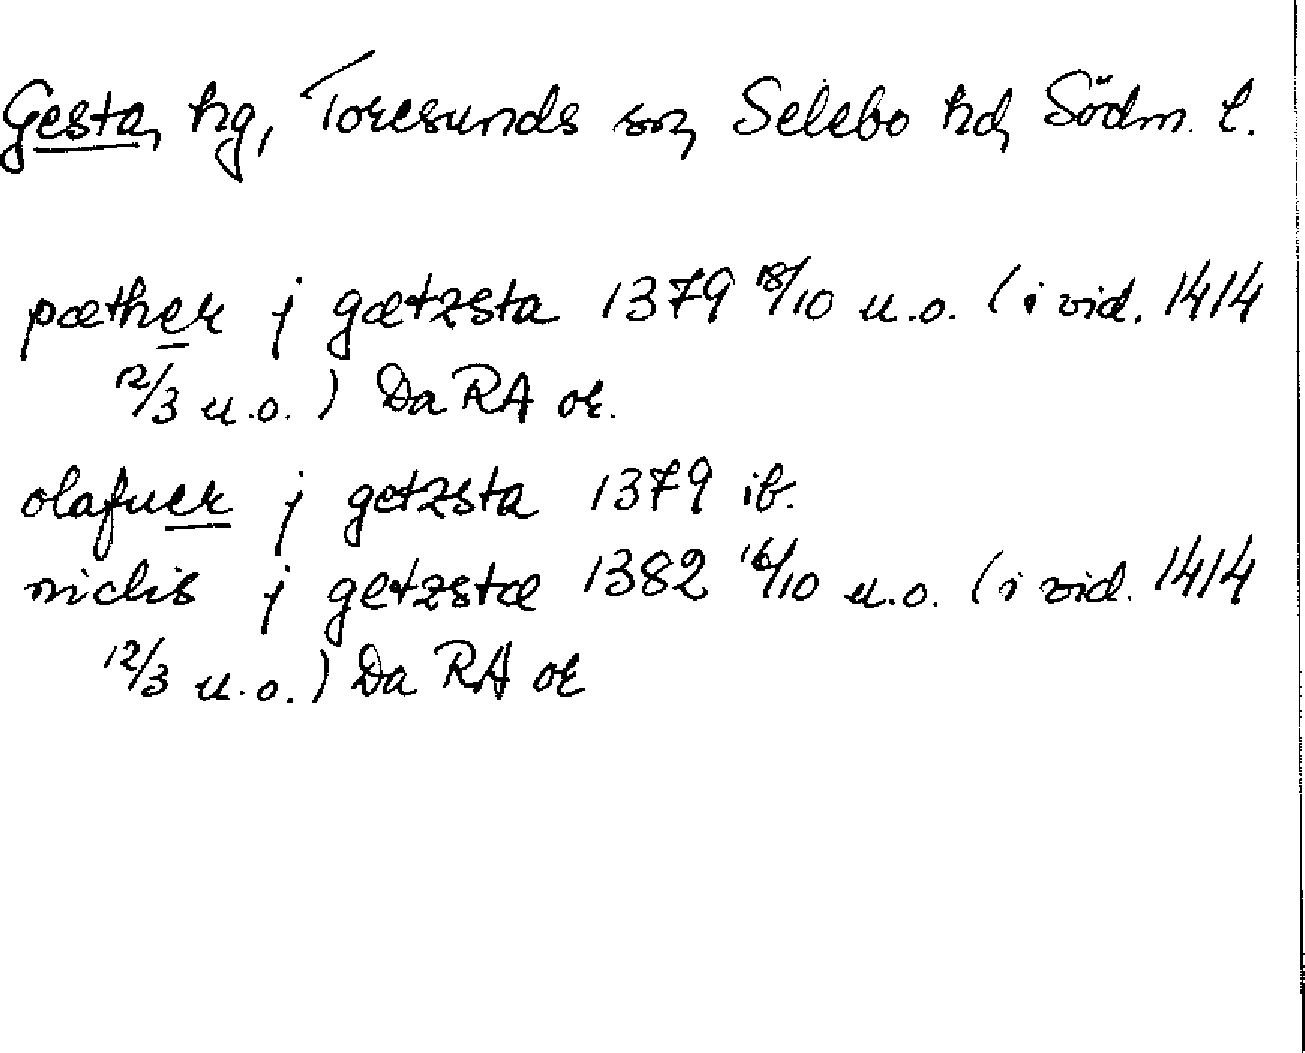 Gesta, hg, Toresunds sn, Selebo hd, Södm. l.
pæther j gætzsta 1379 18/10 u.o. (i vid. 1414
12/3 u.o.) Da RA or.
olafuer j getzsta 1379 ib.
niclis j getzstæ 1382 16/10 u.o. (i vid. 1414
12/3 u.o.) Da RA or